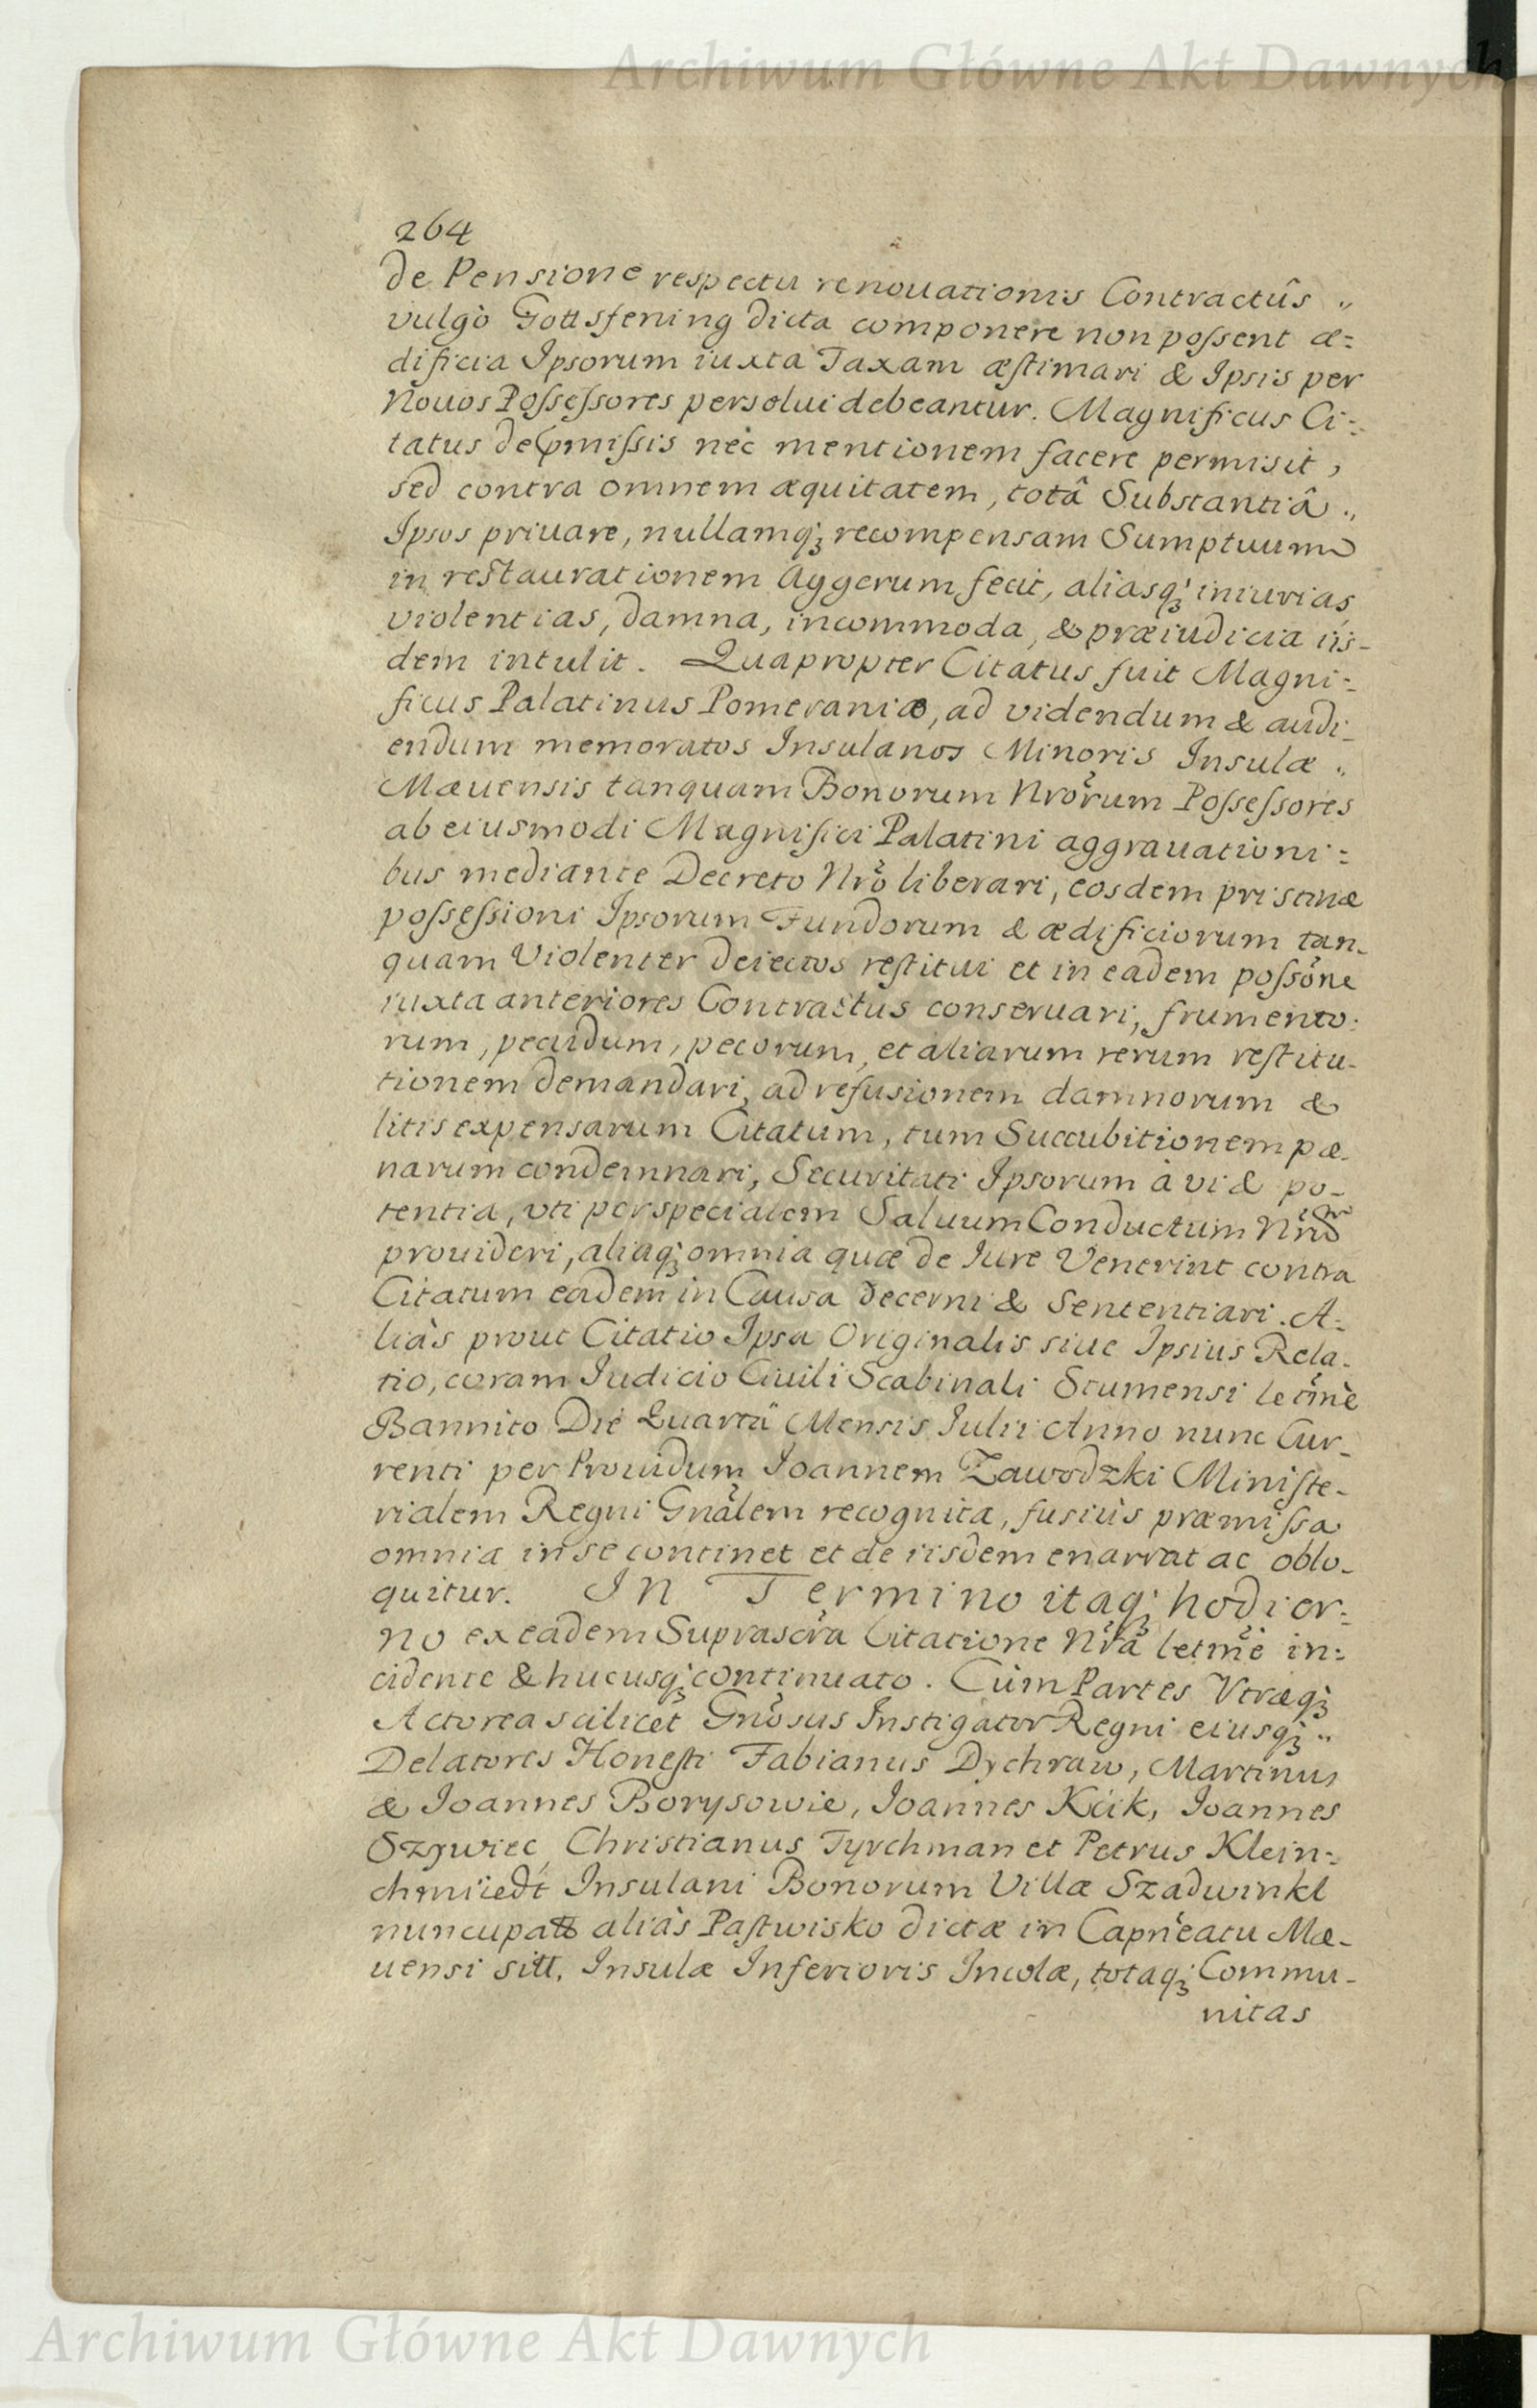 Archiwum Główne Akt Dawnych
264
de Pensione respectu renouationis Contractûs „
vulgò Gottsfening dicta componere non possent æ=
dificia Ipsorum iuxta Taxam æstimari & Ipsis per
Nouos Possessores persolui debeantur. Magnificus Ci=
tatus de pmissis nec mentionem facere permisit,
sed contra omnem æquitatem, totâ Substantiâ „
Ipsos priuare, nullamq; recompensam Sumptuum
in restaurationem Aggerum fecit, aliasq; iniurias,
violentias, damna, incommoda, & præiudicia iis-
dem intulit. Quapropter Citatus fuit Magni=
ficus Palatinus Pomeraniæ, ad videndum & audi-
endum memoratos Insulanos Minoris Insulæ „
Mæuensis tanquam Bonorum Nrorum Possessores
ab eiusmodi Magnifici Palatini aggrauationi=
bus mediante Decreto Nro liberari, eosdem pristinæ
possessioni Ipsorum Fundorum & ædificiorum tan-
quam Violenter deiectos restitui et in eadem possone
iuxta anteriores Contractus conseruari, frumento-
rum, pecudum, pecorum, et aliarum rerum restitu-
tionem demandari, ad refusionem damnorum &
litis expensarum Citatum, tum Succubitionem pæ-
narum condemnari, Securitati Ipsorum à vi & po-
tentia, vti per specialem Saluum Conductum Nrm
prouideri, aliaq; omnia quæ de Iure Venerint contra
Citatum eadem in Causa decerni & Sententiari. A-
liàs prout Citatio Ipsa Originalis siue Ipsius Rela-
tio, coram Iudicio Ciuili Scabinali Stumensi letme
Bannito Die Quarta Mensis Iulii Anno nunc Cur-
renti per Prouidum Ioannem Zawodzki Ministe-
rialem Regni Gnalem recognita, fusius præmissa
omnia in se continet et de iisdem enarrat ac oblo-
quitur. In Termino itaq; hodier=
no ex eadem Suprascra Citatione Nra letme in=
cidente & hucusq; continuato. Cùm Partes Vtræq;
Actorea scilicet Gnosus Instigator Regni eiusq; „
Delatores Honesti Fabianus Dychraw, Martinus
& Ioannes Borysowie, Ioannes Kiik, Ioannes
Szywiec, Christianus Tyrchman et Petrus Klein=
chmiedt Insulani Bonorum Villæ Szadwinkl
nuncupatt aliàs Pastwisko dictæ in Capneatu Mæ-
uensi sitt. Insulæ Inferioris Incolæ, totaq; Commu-
nitas
Archiwum Główne Akt Dawnych